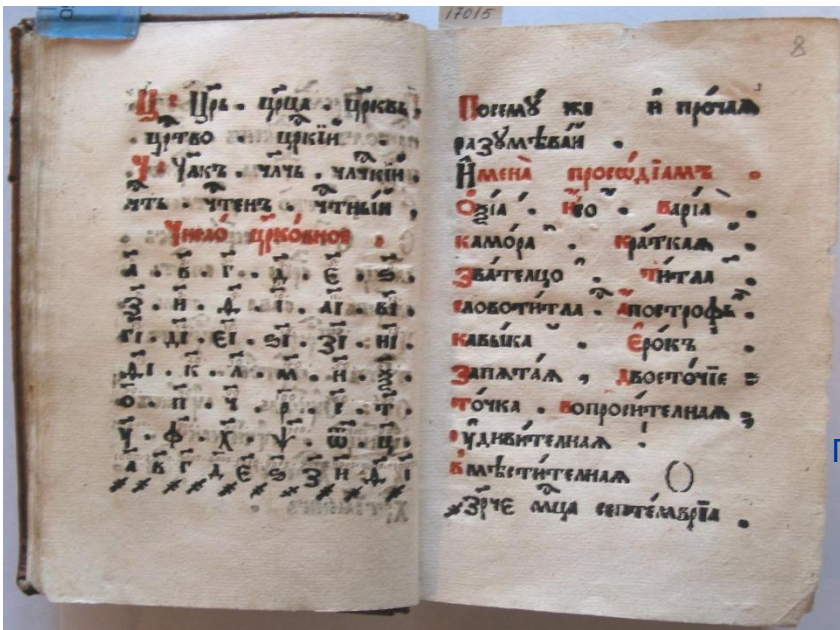 17015
8
Ц: Цр҃ь . цр҃ца . цр҃квь ,
цр҃тво . цр҃кїи .
Ч: Чл҃къ . чл҃чь . чл҃чкїи ,
чт҃ь . чт҃енъ . чт҃ныи ,
Число̀ цр҃ко́вное .
а҃ . в҃ . г҃ . д҃ . є҃ . ѕ҃ .
з҃ . и҃ . ѳ҃ . і҃ . аі҃ . ві҃ .
гі҃ . ді҃ . єі҃ . ѕі҃ . зі҃ . иі҃ .
ѳі҃ . к҃ . л҃ . м҃ . н҃ . ѯ҃ .
о҃ . п҃ . ч҃ . р҃ . с҃ . т҃ .
у҃ . ф҃ . х҃ . ѱ҃ . ѿ҃ . ц҃ .
҂ ҂ ҂ ҂ ҂ ҂ ҂ ҂ ҂ ҂
Посемꙋ́ же и҆ про́чаѧ
разꙋмѣва́й .
И҆мена̀ просѡді́амъ .
Ѻ҆ѯі́а . и҆́со . варі́а .
камо́ра . кра́ткаѧ .
Зва́телцо . ти́тла .
словоти́тла . а҆постро́фь .
кавы́ка . є҆ро́къ .
Запѧта́ѧ , двоето́чїе :
то́чка . вопроси́телнаѧ ;
ᲂу҆диви́телнаѧ !
вмѣсти́телнаѧ ()
҂Зр҃че мц҃а септе́мврїа .